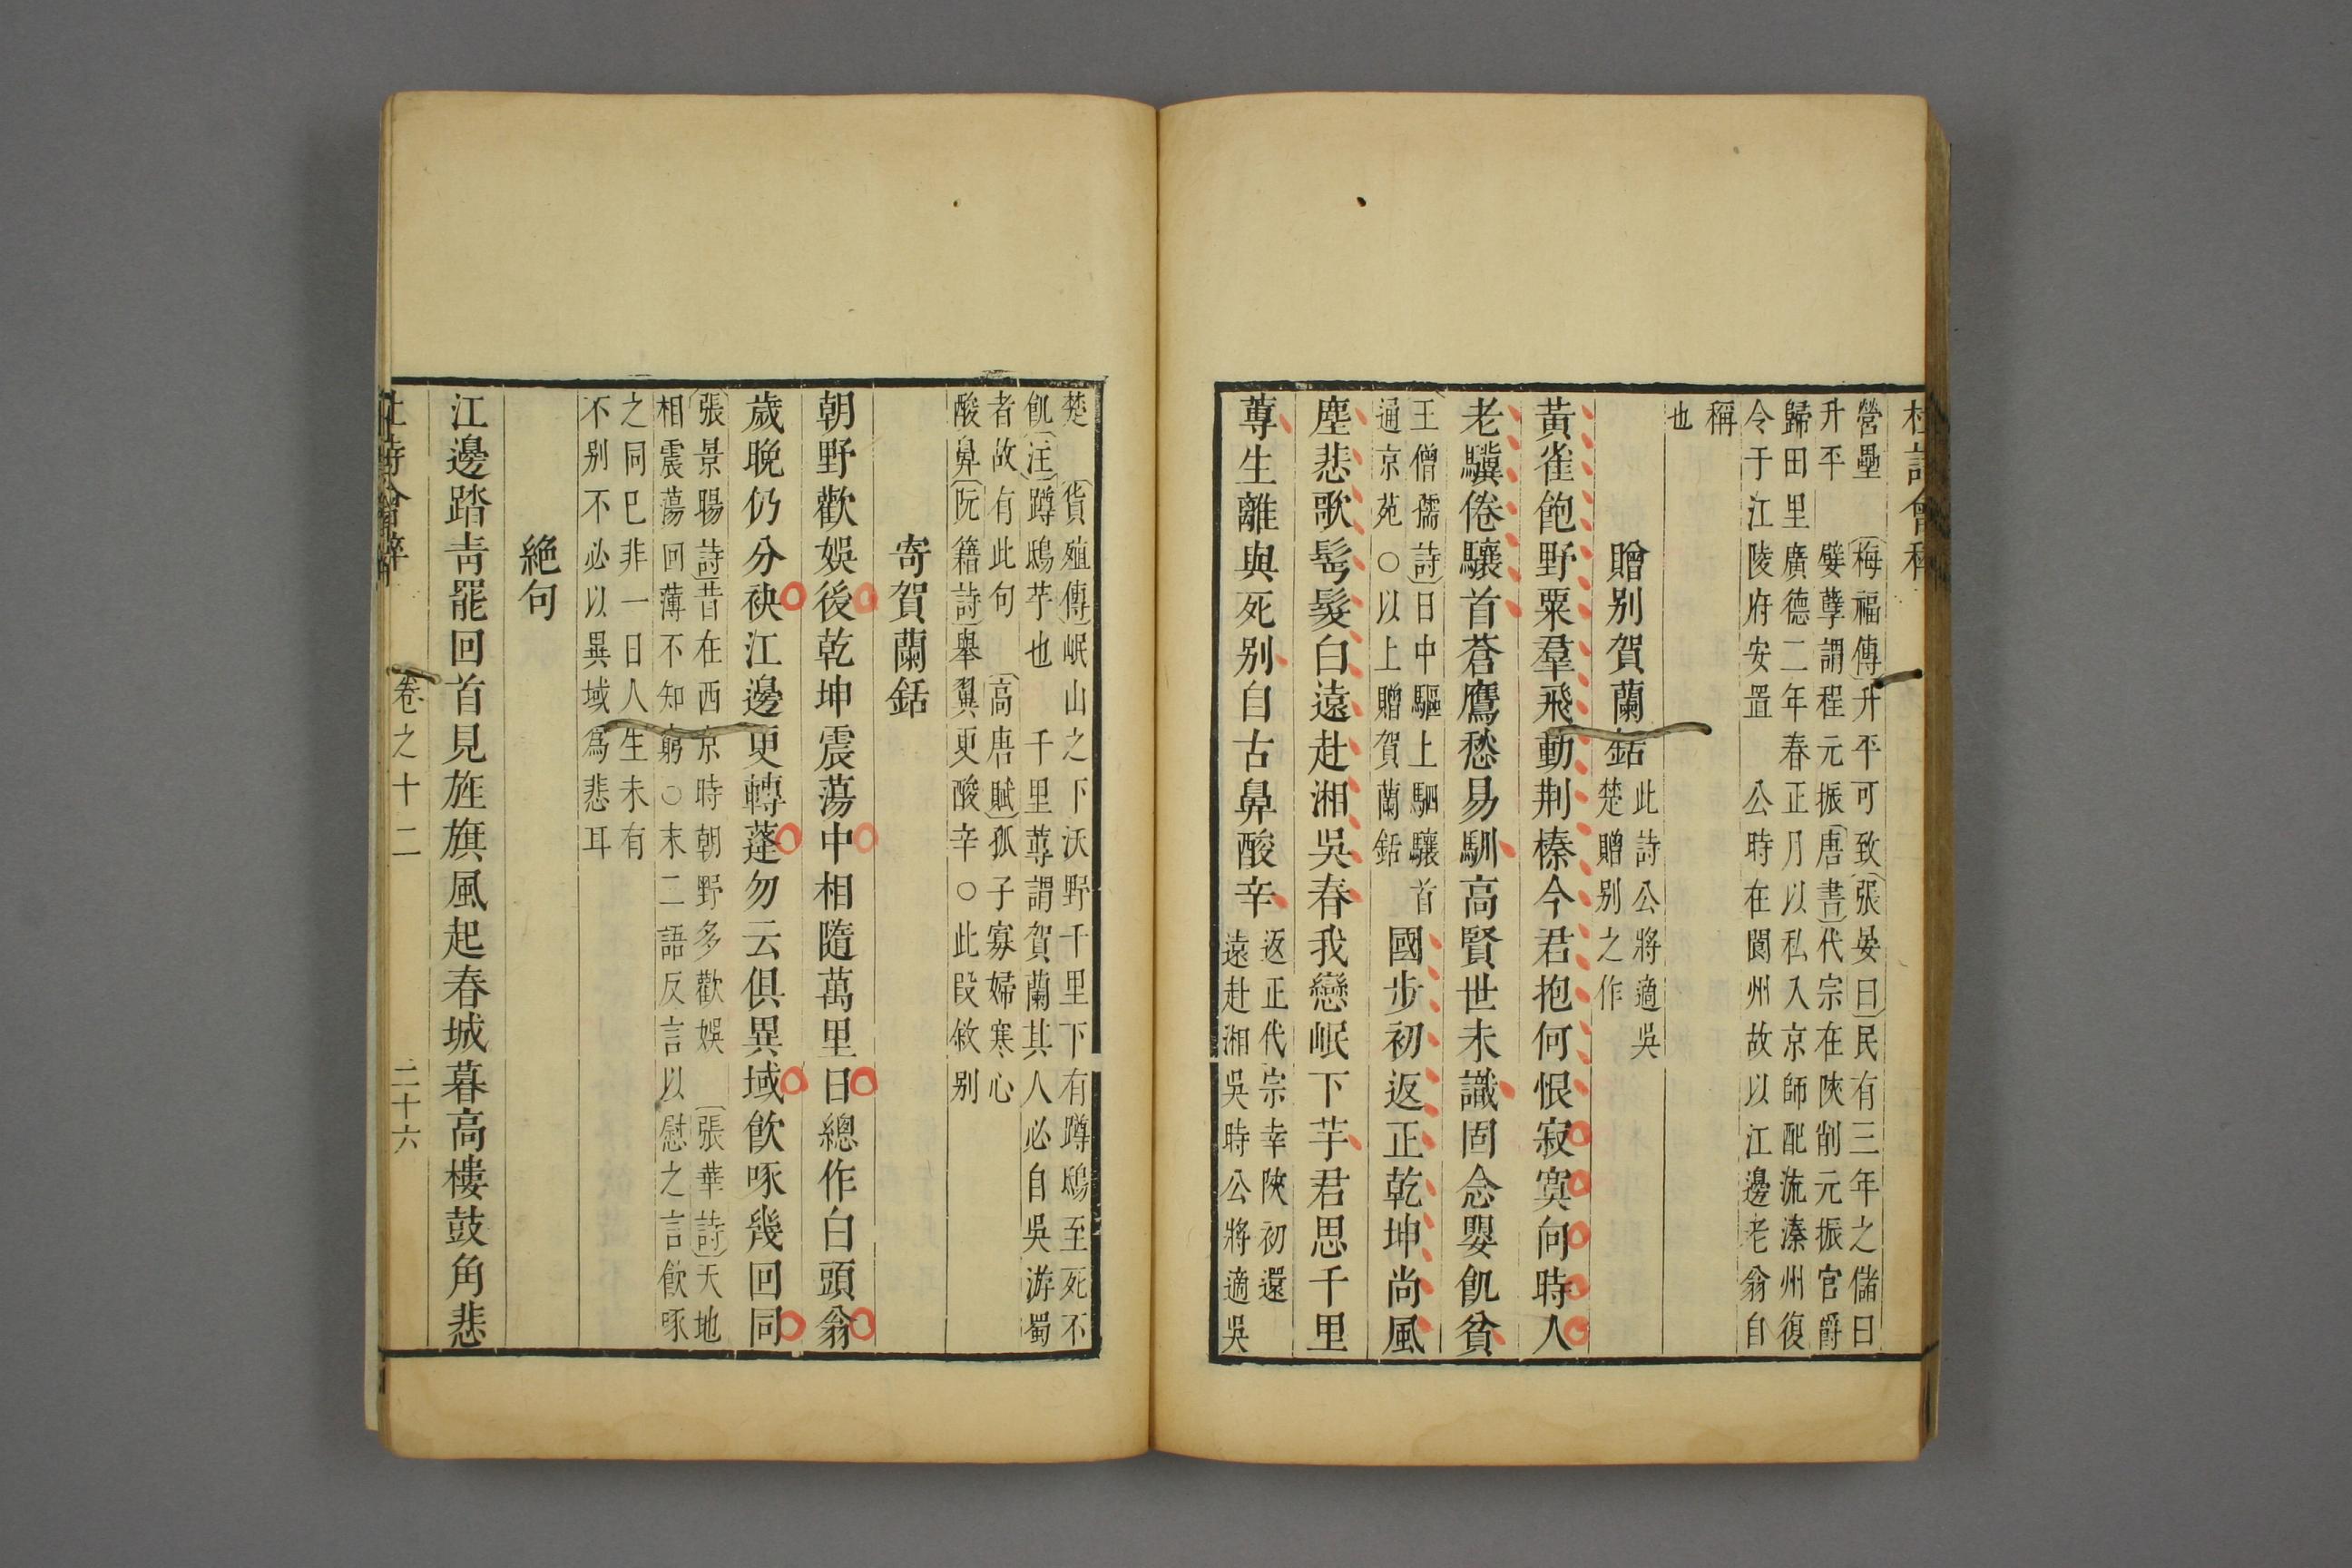 杜詩會稡
營壘　〔梅福傳〕升平可致〔張晏曰〕民有三年之儲曰
升平　嬖孽謂程元振〔唐書〕代宗在陝削元振官爵
歸田里廣德二年春正月以私入京師配流溱州復
令于江陵府安置　公時在閬州故以江邊老翁自
稱
也
贈别賀蘭銛
此詩公將適吳
楚贈别之作
黃雀飽野粟羣飛動荆榛今君抱何恨寂寞向時人
老驥倦驤首蒼鷹愁易馴高賢世未識固念嬰飢貧
王僧孺〔詩〕日中驅上駟驤首
通京苑○以上贈賀蘭銛
國步初返正乾坤尚風
塵悲歌髩髮白遠赴湘吳春我戀岷下芋君思千里
蓴生離與死别自古鼻酸辛
返正代宗幸陝初還
遠赴湘吳時公將適吳
楚　〔貨殖傳〕岷山之下沃野千里下有蹲鴟至死不
飢〔注〕蹲鴟芋也　千里蓴謂賀蘭其人必自吳游蜀
者故有此句　〔高唐賦〕孤子寡婦寒心
酸鼻〔阮籍詩〕舉翼更酸辛○此段敘别
寄賀蘭銛
朝野歡娛後乾坤震蕩中相隨萬里日總作白頭翁
歲晚仍分袂江邊更轉蓬勿云俱異域飲啄幾回同
〔張景暘詩〕昔在西京時朝野多歡娛　〔張華詩〕天地
相震蕩回薄不知窮○末二語反言以慰之言飲啄
之同已非一日人生未有
不别不必以異域爲悲耳
絶句
江邊踏青罷回首見旌旗風起春城暮高樓鼓角悲
杜詩會稡
卷之十二
二十六